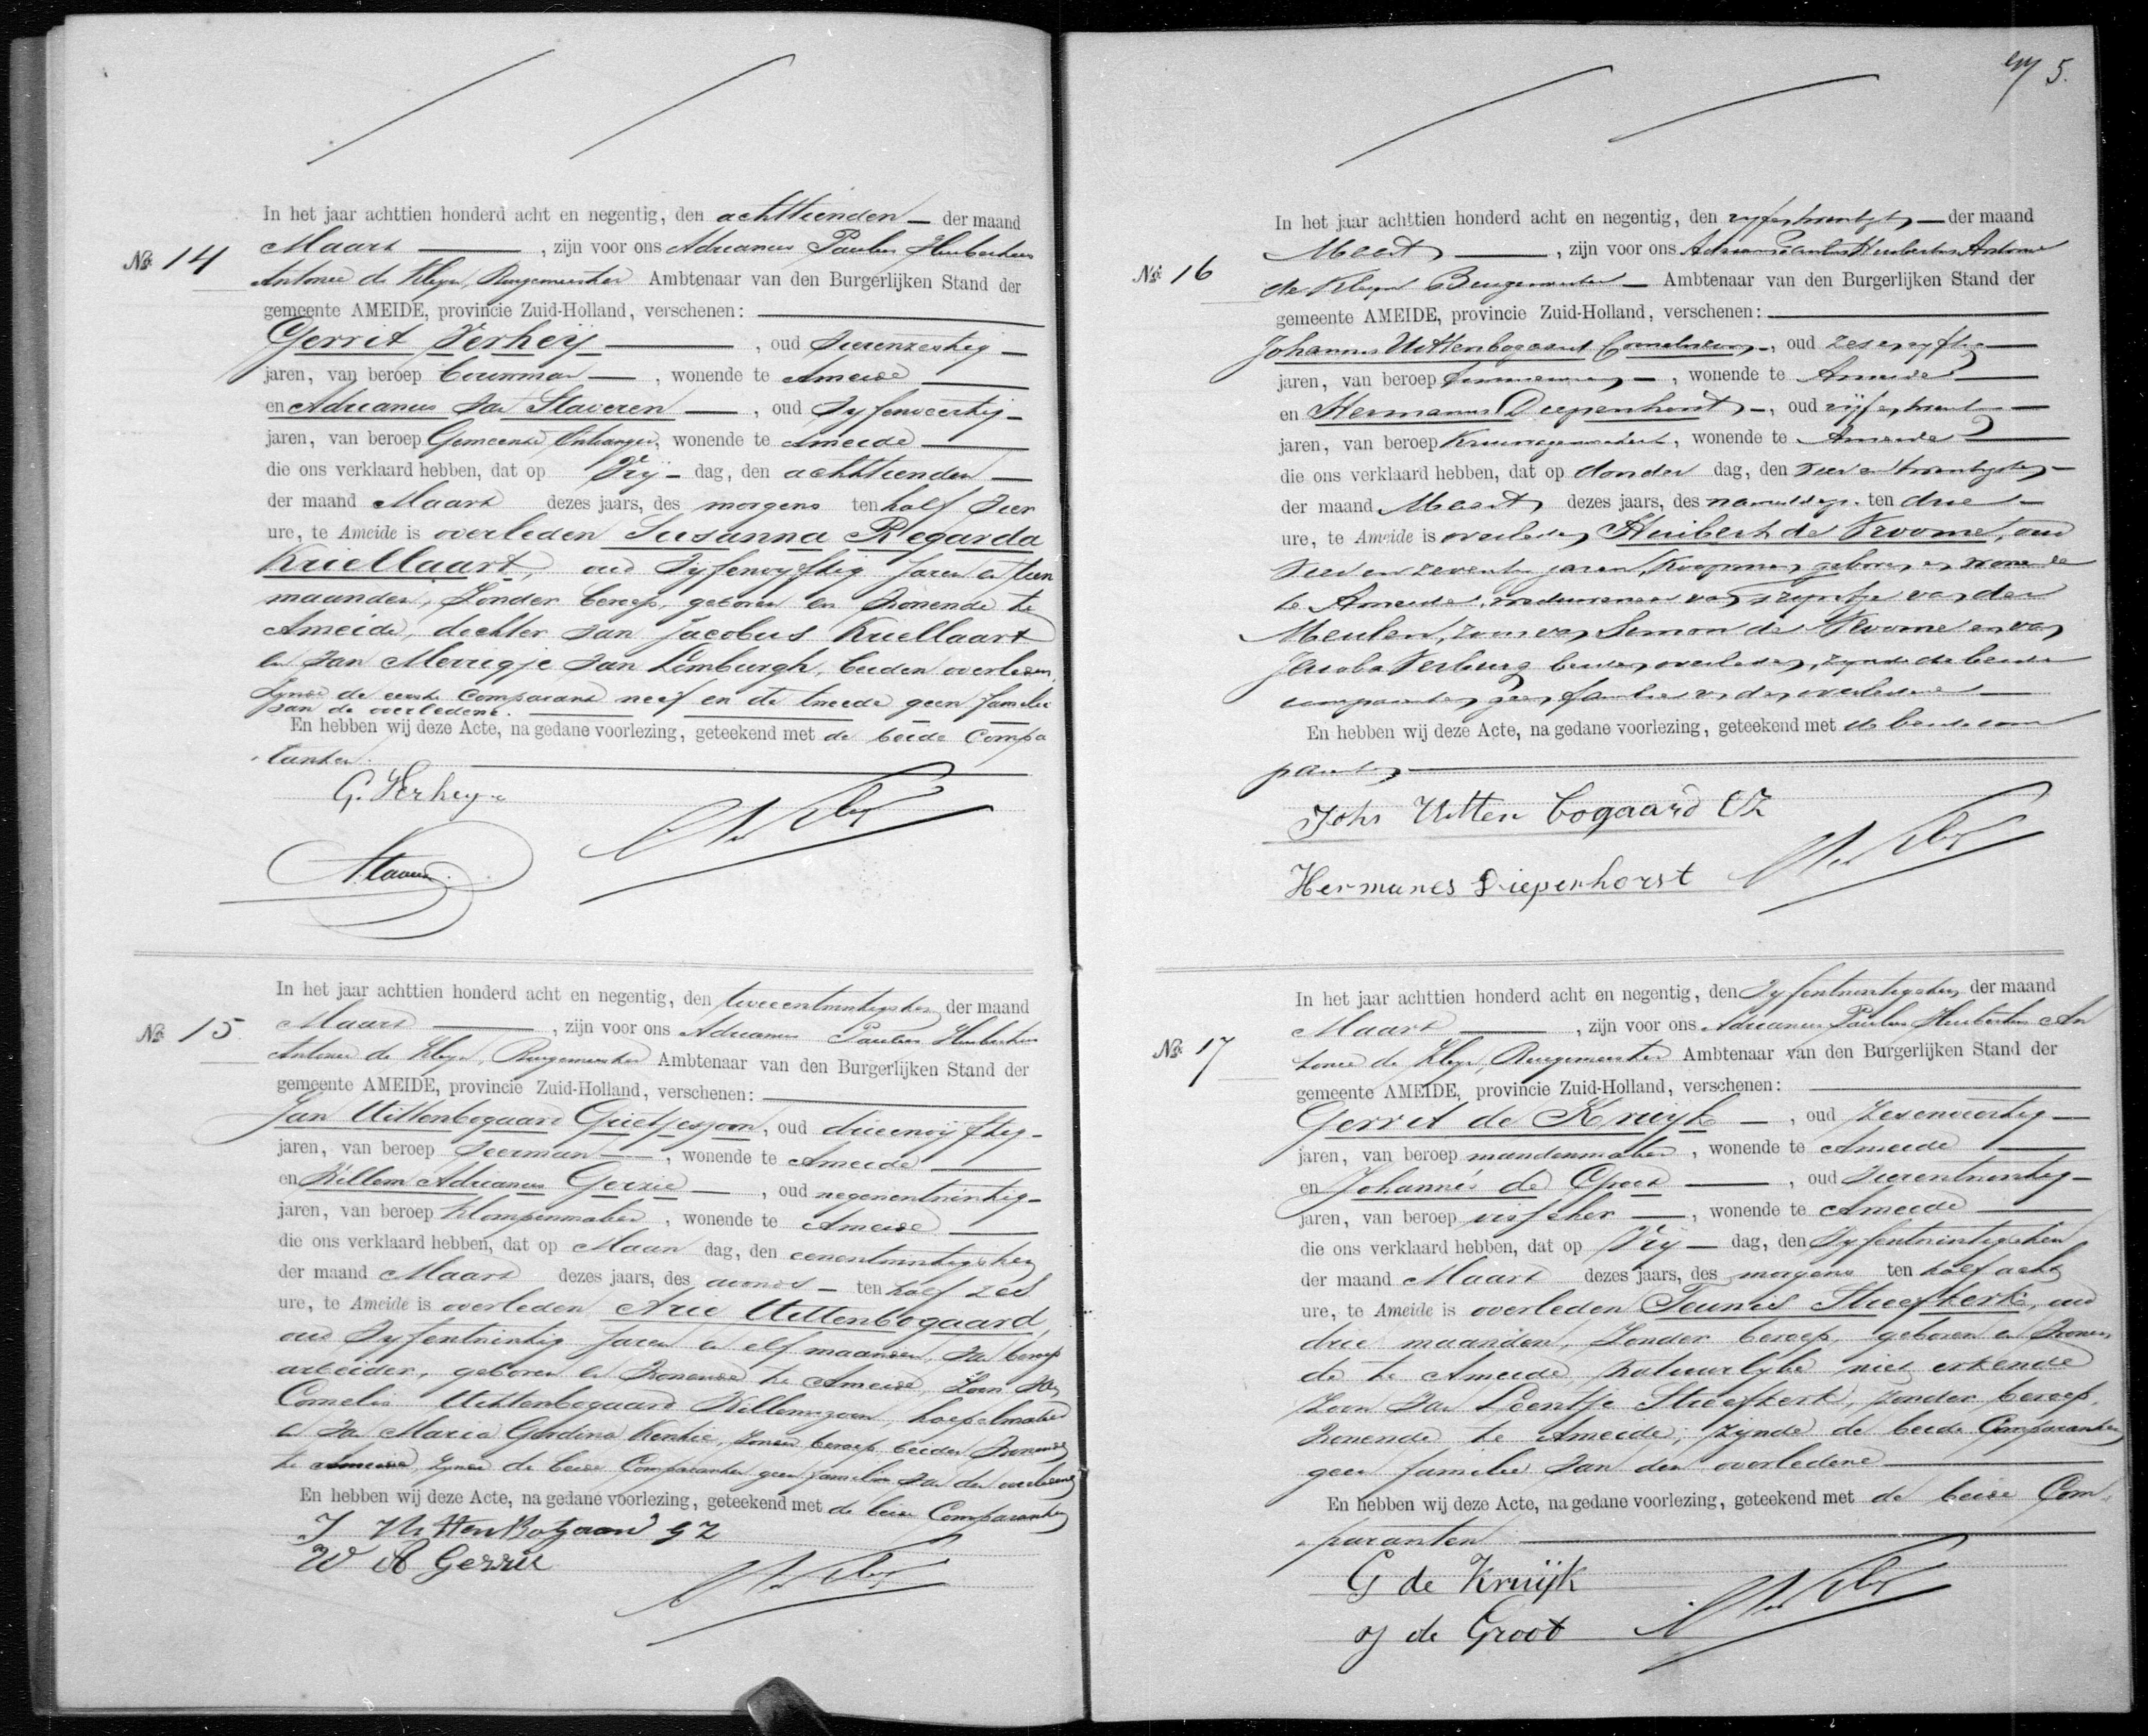 No. 14
In het jaar achttien honderd acht en negentig, den achttienden — der maand
Maart —, zijn voor ons Adrianus Paulus Huibertus
Antonie de Kleyn, Burgemeester Ambtenaar van den Burgerlijken Stand der
gemeente AMEIDE, provincie Zuid-Holland, verschenen: —
Gerrit Verheij —, oud vierenzestig —
jaren, van beroep bouwman —, wonende te Ameide —
en Adrianus van Staveren —, oud vyfenveertig —
jaren, van beroep Gemeente Ontvanger, wonende te Ameide —
die ons verklaard hebben, dat op Vrij - dag, den achttienden —
der maand Maart dezes jaars, des morgens ten half vier
ure, te Ameide is overleden Susanna Regarda
Kriellaart, oud vyfenvyftig jaren en tien
maanden, zonder beroep, geboren en wonende te
Ameide, dochter van Jacobus Kriellaart
en van Merrigje van Lomburgh, beiden overleden,
zynde de eerste Comparant neef en de tweede geen familie
van de overledene. —
En hebben wij deze Acte, na gedane voorlezing, geteekend met de beide Compa
ranten. —
G. Verhey
Staveren
No. 15
In het jaar achttien honderd acht en negentig, den tweeentwintigsten der maand
Maart —, zijn voor ons Adrianus Paulus Huibertus
Antonie de Kleyn, Burgemeester Ambtenaar van den Burgerlijken Stand der
gemeente AMEIDE, provincie Zuid-Holland, verschenen: —
Jan Uittenbogaard Grietjeszoon, oud drieenvyftig —
jaren, van beroep veerman —, wonende te Ameide —
en Willem Adrianus Gerrie —, oud negenentwintig —
jaren, van beroep klompenmaker, wonende te Ameide —
die ons verklaard hebben, dat op Maan dag, den eenentwintigsten
der maand Maart dezes jaars, des avonds — ten half zes
ure, te Ameide is overleden Arie Uittenbogaard,
oud vyfentwintig jaren en elf maanden, van beroep
arbeider, geboren en wonende te Ameide, zoon van
Cornelis Uittenbogaard Willemszoon, hoepelmaker
en van Maria Gerdina Kentie, zonder beroep beiden wonende
te Ameide, zynde de beide Comparanten geen familie van den overledene
En hebben wij deze Acte, na gedane voorlezing, geteekend met de beide Comparanten
J Uittenbogaard GZ
W A Gerrie
5.
No. 16
In het jaar achttien honderd acht en negentig, den vyfentwintigsten — der maand
Maart —, zijn voor ons Adrianus Paulus Huibertus Antonie
de Kleyn Burgemeester — Ambtenaar van den Burgerlijken Stand der
gemeente AMEIDE, provincie Zuid-Holland, verschenen: —
Johannes Uittenbogaard Corneliszoon —, oud zesenvyftig —
jaren, van beroep —, wonende te Ameide —
en Hermanus Diepenhorst —, oud vijfentwintig —
jaren, van beroep, wonende te Ameide —
die ons verklaard hebben, dat op donder dag, den vierentwintigsten —
der maand Maart dezes jaars, des namiddags ten drie —
ure, te Ameide is overleden Huibert de Vroome, oud
vierenzeventig jaren, Koopman, geboren en wonende
te Ameide, weduwnaar van Pryntje van der
Meulen, zoon van Simon de Vroome en van
Jacoba Verburg beiden overleden, zynde de beide
comparanten geen familie van den overledene —
En hebben wij deze Acte, na gedane voorlezing, geteekend met de beide com
paranten —
Johs Uitten bogaard CZ
Hermanes Diepenhorst
No. 17
In het jaar achttien honderd acht en negentig, den vyfentwintigsten der maand
Maart —, zijn voor ons Adrianus Paulus Huibertus An
tonie de Kleyn, Burgemeester Ambtenaar van den Burgerlijken Stand der
gemeente AMEIDE, provincie Zuid-Holland, verschenen: —
Gerrit de Kruijk —, oud zesenveertig —
jaren, van beroep mandenmaker, wonende te Ameide —
en Johannes de Groot —, oud vierentwintig —
jaren, van beroep visscher —, wonende te Ameide —
die ons verklaard hebben, dat op Vrij — dag, den vyfentwintigsten
der maand Maart dezes jaars, des morgens ten half acht
ure, te Ameide is overleden Teunis Streefkerk, oud
drie maanden, zonder beroep, geboren en wonen
de te Ameide, natuurlyke niet erkende
zoon van Leentje Streefkerk, zonder beroep,
wonende te Ameide, zynde de beide Comparanten
geen familie van den overledene —
En hebben wij deze Acte, na gedane voorlezing, geteekend met de beide Com
paranten —
G de Kruijk
J de Groot